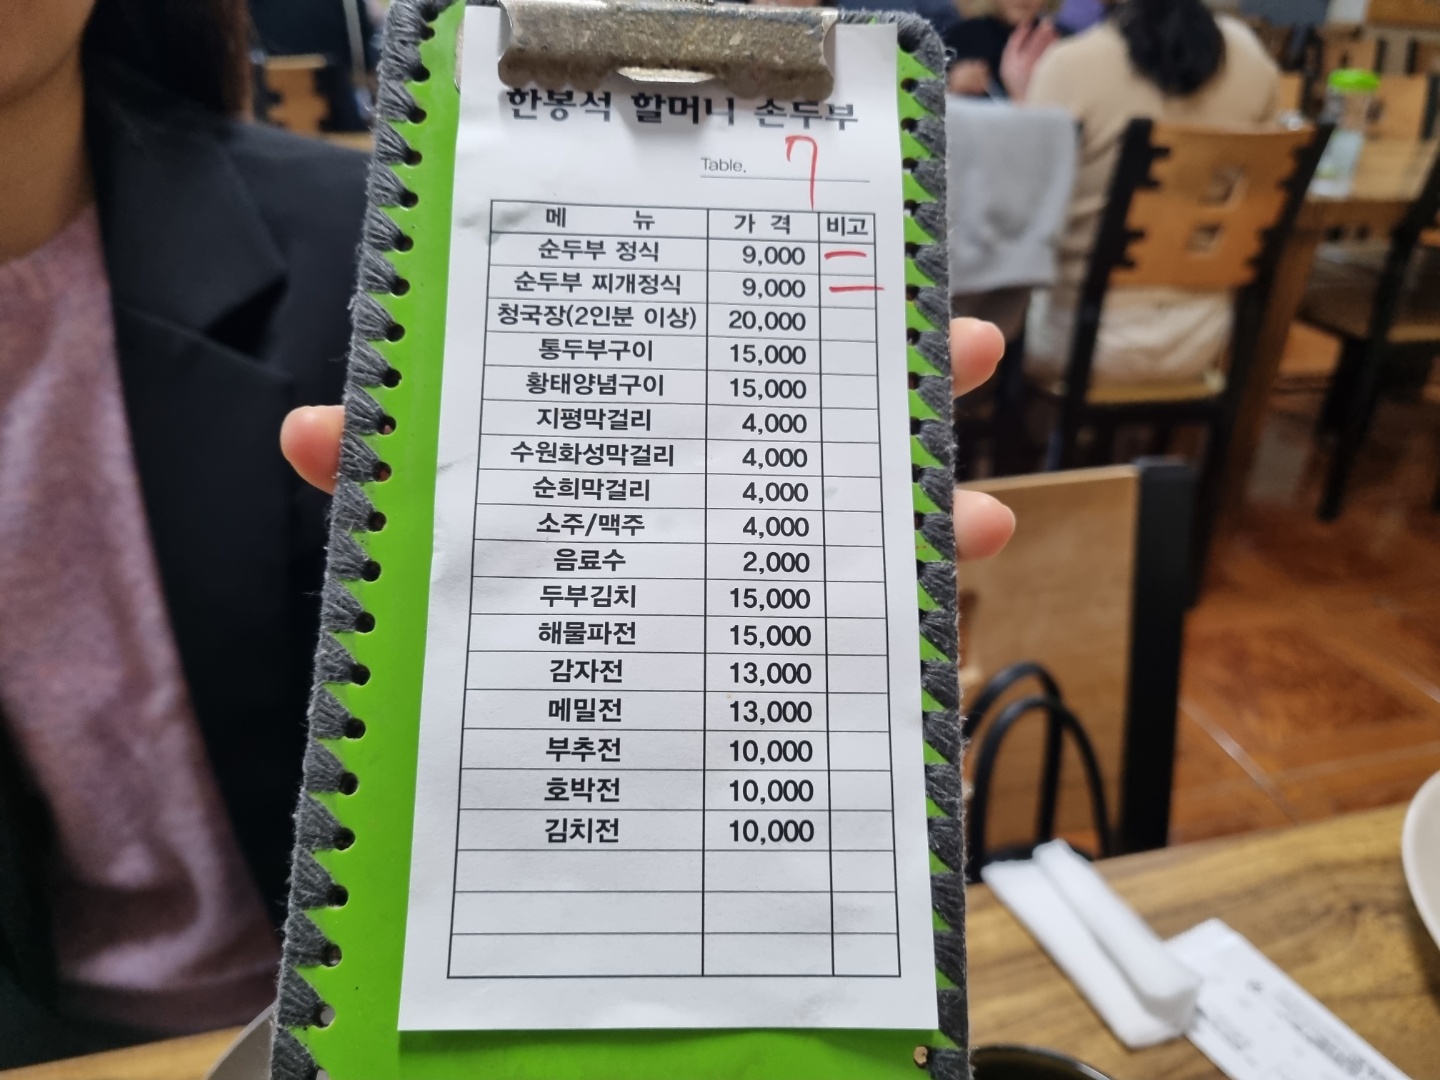 한봉석 할머니 손두부
Table. 7
메 뉴 가 격 비고
순두부 정식 9,000 一
순두부 찌개정식 9,000 一
청국장(2인분 이상) 20,000
통두부구이 15,000
황태양념구이 15,000
지평막걸리 4,000
수원화성막걸리 4,000
순희막걸리 4,000
소주/맥주 4,000
음료수 2,000
두부김치 15,000
해물파전 15,000
감자전 13,000
메밀전 13,000
부추전 10,000
호박전 10,000
김치전 10,000